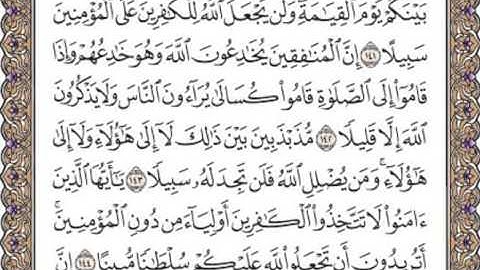 بَيْنَكُمْ يَوْمَ ٱلْقِيَٰمَةِ وَلَن يَجْعَلَ ٱللَّهُ لِلْكَٰفِرِينَ عَلَى ٱلْمُؤْمِنِينَ
سَبِيلًا ١٤١ إِنَّ ٱلْمُنَٰفِقِينَ يُخَٰدِعُونَ ٱللَّهَ وَهُوَ خَٰدِعُهُمْ وَإِذَا
قَامُوٓا۟ إِلَى ٱلصَّلَوٰةِ قَامُوا۟ كُسَالَىٰ يُرَآءُونَ ٱلنَّاسَ وَلَا يَذْكُرُونَ
ٱللَّهَ إِلَّا قَلِيلًا ١٤٢ مُّذَبْذَبِينَ بَيْنَ ذَٰلِكَ لَآ إِلَىٰ هَٰٓؤُلَآءِ وَلَآ إِلَىٰ
هَٰٓؤُلَآءِ ۚ وَمَن يُضْلِلِ ٱللَّهُ فَلَن تَجِدَ لَهُۥ سَبِيلًا ١٤٣ يَٰٓأَيُّهَا ٱلَّذِينَ
ءَامَنُوا۟ لَا تَتَّخِذُوا۟ ٱلْكَٰفِرِينَ أَوْلِيَآءَ مِن دُونِ ٱلْمُؤْمِنِينَ ۚ
أَتُرِيدُونَ أَن تَجْعَلُوا۟ لِلَّهِ عَلَيْكُمْ سُلْطَٰنًا مُّبِينًا ١٤٤ إِنَّ